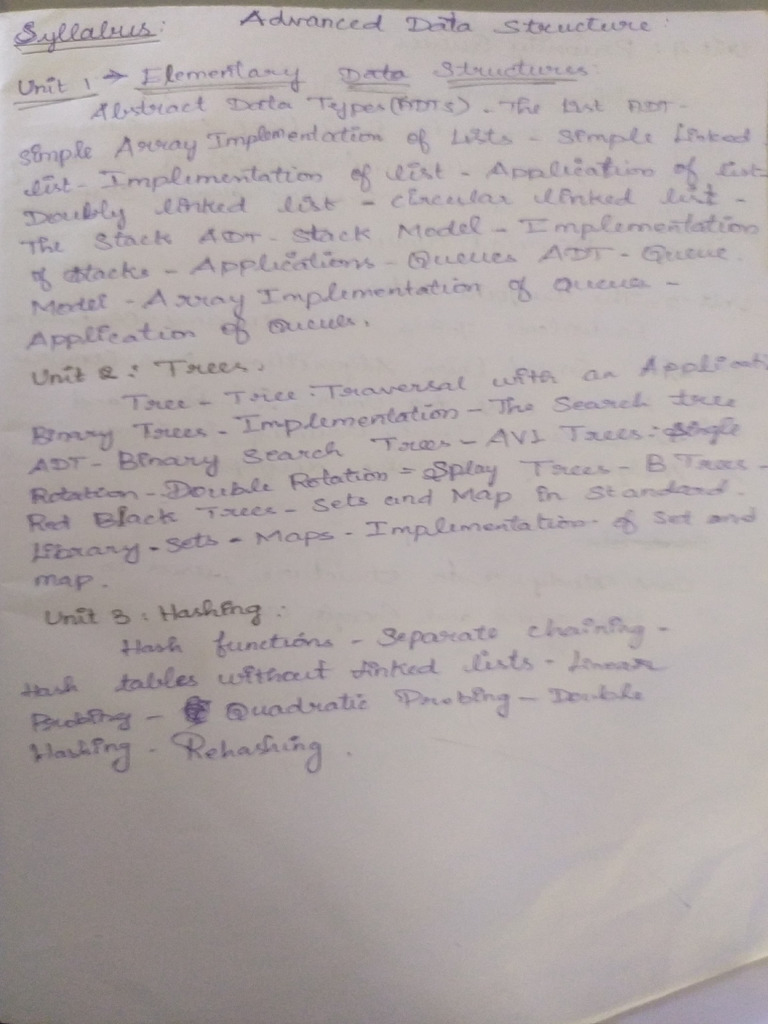 Syllabus: Advanced Data Structure:
Unit 1 → Elementary Data Structures:
Abstract Data Types (ADTs) - The List ADT -
Simple Array Implementation of Lists - Simple Linked
list - Implementation of list - Application of list
Doubly linked list - circular linked list -
The Stack ADT - Stack Model - Implementation
of stacks - Applications - Queues ADT - Queue
Model - Array Implementation of Queues -
Application of Queues.
Unit 2 : Trees.
Tree - Tree : Traversal with an Applicati
Binary Trees - Implementation - The Search tree
ADT - Binary Search Trees - AVL Trees : Single
Rotation - Double Rotation - Splay Trees - B Trees -
Red Black Trees - Sets and Map in Standard
Library - Sets - Maps - Implementation of Set and
map.
Unit 3 : Hashing :
Hash functions - Separate chaining -
Hash tables without linked lists - Linear
Probing - Quadratic Probing - Double
Hashing - Rehashing.